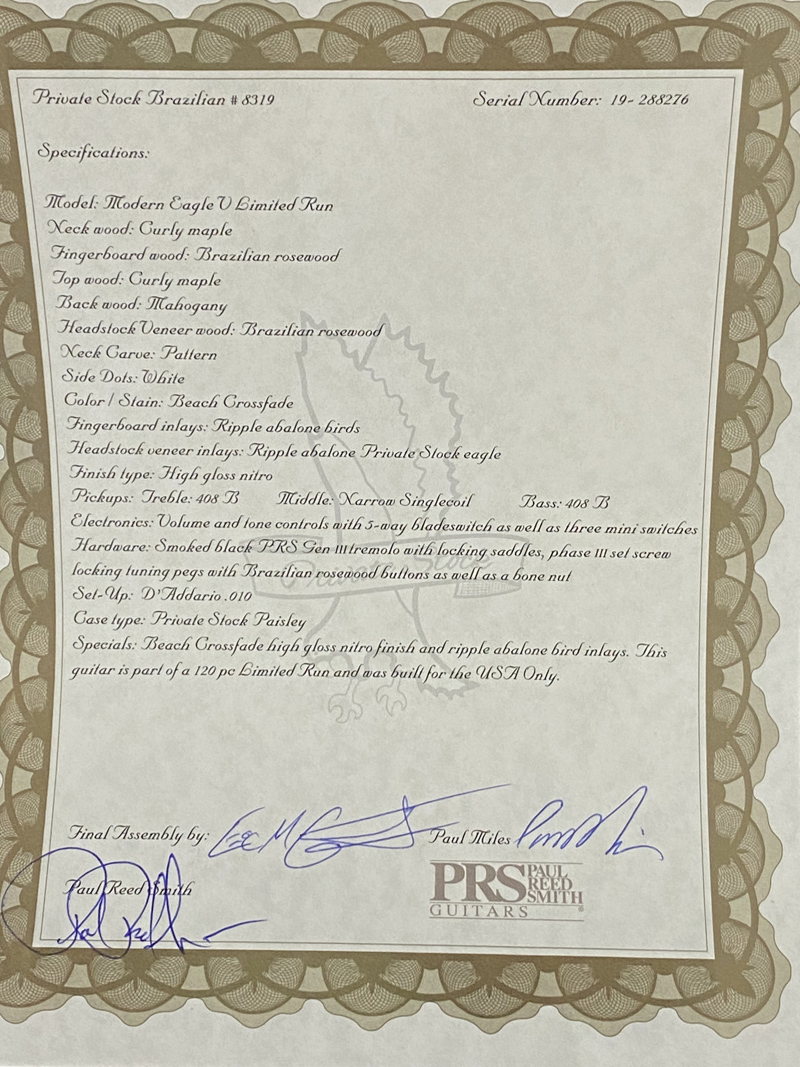 Private Stock Brazilian # 8319
Serial Number: 19-288276
Specifications:
Model: Modern Eagle V Limited Run
Neck wood: Curly maple
Fingerboard wood: Brazilian rosewood
Top wood: Curly maple
Back wood: Mahogany
Headstock Veneer wood: Brazilian rosewood
Neck Carve: Pattern
Side Dots: White
Color / Stain: Beach Crossfade
Fingerboard inlays: Ripple abalone birds
Headstock veneer inlays: Ripple abalone Private Stock eagle
Finish type: High gloss nitro
Pickups: Treble: 408 B Middle: Narrow Singlecoil Bass: 408 B
Electronics: Volume and tone controls with 5-way bladeswitch as well as three mini switches
Hardware: Smoked black PRS Gen III tremolo with locking saddles, phase III set screw
locking tuning pegs with Brazilian rosewood buttons as well as a bone nut
Private Stock
Set-Up: D'Addario .010
Case type: Private Stock Paisley
Specials: Beach Crossfade high gloss nitro finish and ripple abalone bird inlays. This
guitar is part of a 120 pc Limited Run and was built for the USA Only.
Final Assembly by:
Paul Miles
Paul Reed Smith
PRS PAUL REED SMITH
GUITARS